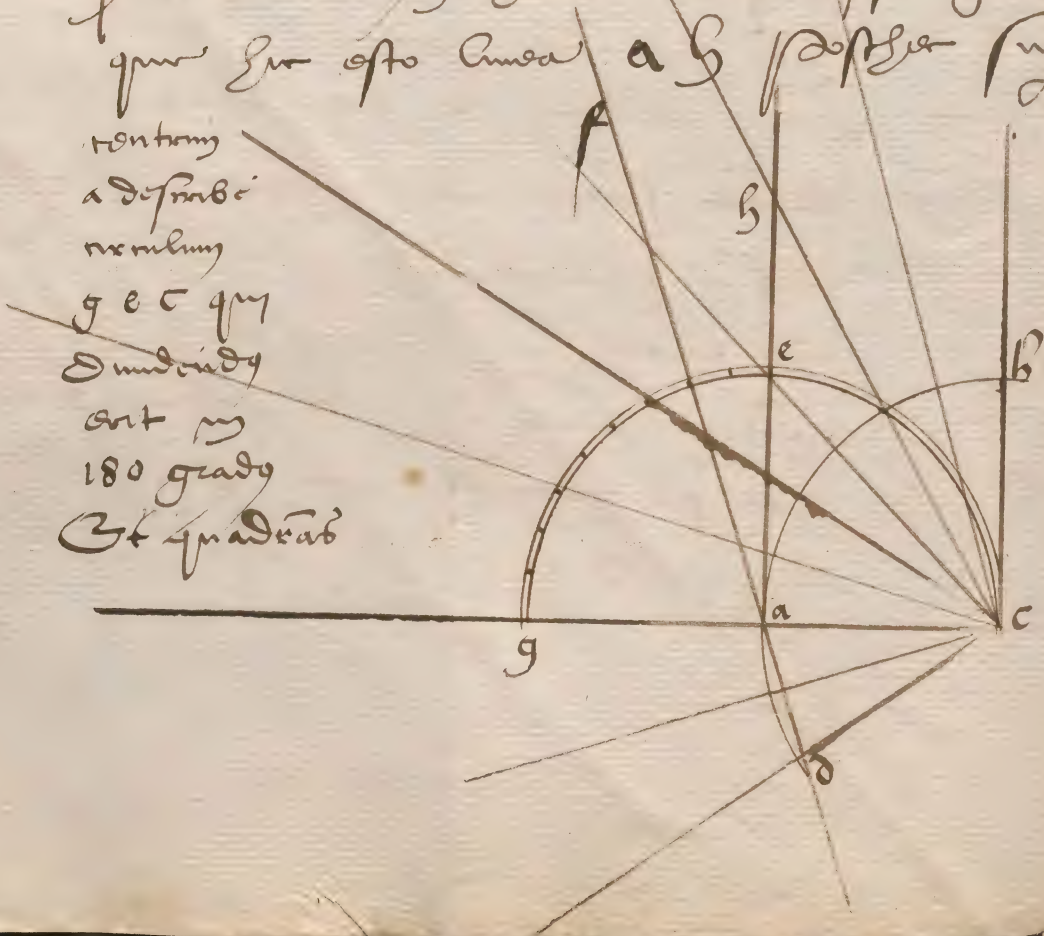 que hic esto linea a h posthec
centrum
a describe
circulum
g e c qui
dividendus
erit in
180 gradus
Et quadrans
f
h
e
b
a
c
g
d